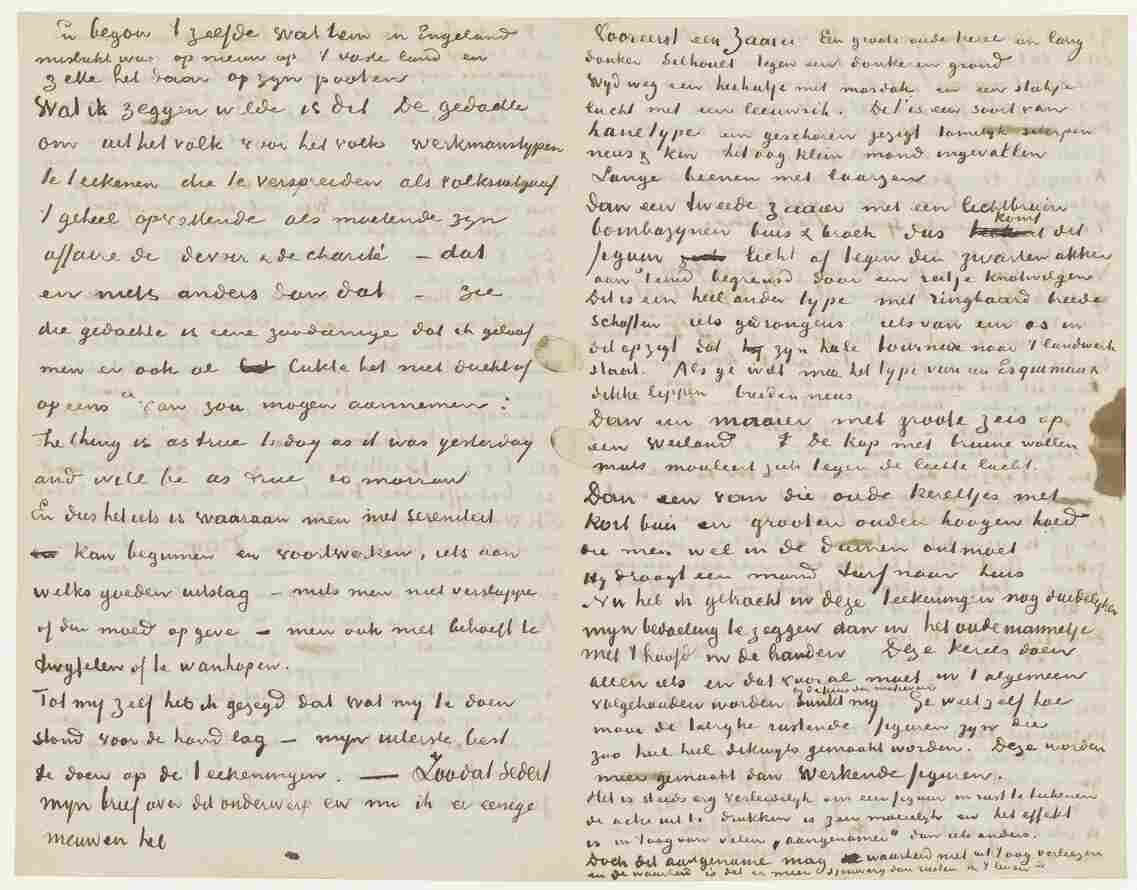 En begon 't zelfde wat hem in Engeland
mislukt was op nieuw op 't vaste land en
zette het daar op zyn pooten
Wat ik zeggen wilde is dit De gedachte
om uit het volk voor het volk werkmanstypen
te teekenen die te verspreiden als volksuitgaaf
't geheel opvattende als moetende zyn
affaire de devoir & de charité – dat
en niets anders dan dat – zie
die gedachte is eene zoodanige dat ik geloof
men er ook al lukte het niet direkt of
opeens van zou mogen aannemen:
The thing is as true to day as it was yesterday
and will be as true to morrow
En dus het iets is waaraan men met sereniteit
kan beginnen en voortwerken, iets aan
welks goeden uitslag – mits men niet verslappe
of den moed op geve – men ook niet behoeft te
twyfelen of te wanhopen.
Tot my zelf heb ik gezegd dat wat my te doen
stond voor de hand lag – myn uiterste best
te doen op de teekeningen. — Zoodat sedert
myn brief over dit onderwerp en nu ik er eenige
nieuwen heb
Vooreerst een Zaaier Een groote oude kerel een lang
donker silhouet tegen een donkeren grond
Wyd weg een heihutje met mosdak en een stukje
lucht met een leeuwrik. Dit is een soort van
hanetype een geschoren gezigt tamelyk scherpen
neus & kin het oog klein mond ingevallen
Lange beenen met laarzen
Dan een tweede zaaier met een lichtbruin
bombazynen buis & broek dus komt dit
figuur licht af tegen den zwarten akker
aan 't eind begrensd door een reitje knotwilgen
Dit is een heel ander type met ringbaard breede
schoften iets gedrongens iets van een os in
dit opzigt dat zyn heele tournure naar 't landwerk
staat. Als ge wilt meer het type van een Esquimaux
dikke lippen breeden neus
Dan een maaier met groote zeis op
een weiland De kop met bruine wollen
muts mouleert zich tegen de lichte lucht.
Dan een van die oude kereltjes met
kort buis en grooten ouden hoogen hoed
die men wel in de duinen ontmoet
Hy draagt een mand turf naar huis
Nu heb ik getracht in deze teekeningen nog duidelyker
myn bedoeling te zeggen dan in het oude mannetje
met 't hoofd in de handen Deze kerels doen
allen iets en dat vooral moet in 't algemeen
volgehouden worden dunkt my Ge weet zelf hoe
mooi de talryke rustende figuren zyn die
zoo heel heel dikwyls gemaakt worden. Deze worden
meer gemaakt dan werkende figuren.
Het is steeds erg verleidelyk om een figuur in rust te teekenen
de actie uit te drukken is zeer moeielyk en het effekt
is in 't oog van velen „aangenamer” dan iets anders.
Doch dit aangename mag de waarheid niet uit 't oog verliezen
en de waarheid is dat er meer van rusten in 't leven is